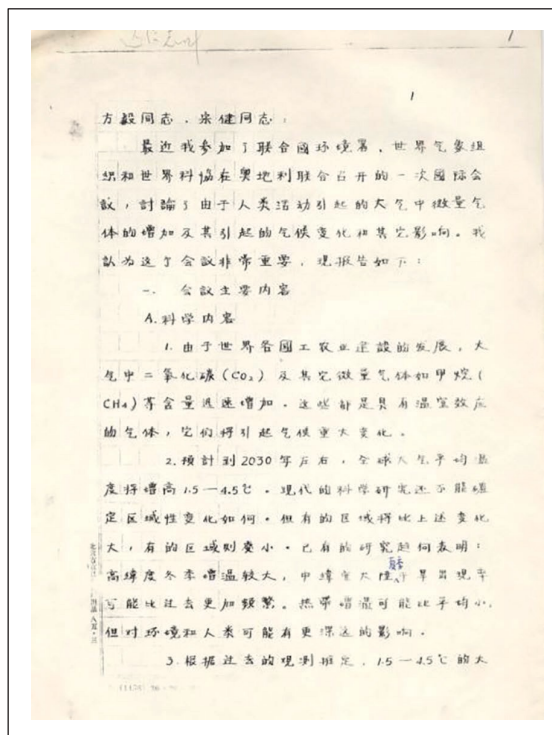 1
1
方毅同志、宋健同志:
最近我参加了联合國环境署、世界气象组
织和世界科協在奥地利联合召开的一次國际会
議,討論了由于人类活动引起的大气中微量气
体的增加及其引起的气候变化和其它影响。我
認为这个会議非常重要,现报告如下:
一. 会議主要内容
A.科学内容
1.由于世界各國工农业建設的发展,大
气中二氧化碳(CO₂)及其它微量气体如甲烷(
CH₄)等含量迅速增加。这些都是具有温室效应
的气体,它们将引起气候重大变化。
2.預計到2030年左右,全球大气平均温
度将增高1.5—4.5℃。现代的科学研究还不能確
定区域性变化如何。但有的区域将比上述变化
大,有的区域则变小。已有的研究趋向表明:
高緯度冬季增温較大,中緯度大陸夏季干旱出现率
可能比过去更加頻繁。热帶增温可能比平均小,
但对环境和人类可能有更深远的影响。
3.根据过去的观测推定,1.5—4.5℃的大